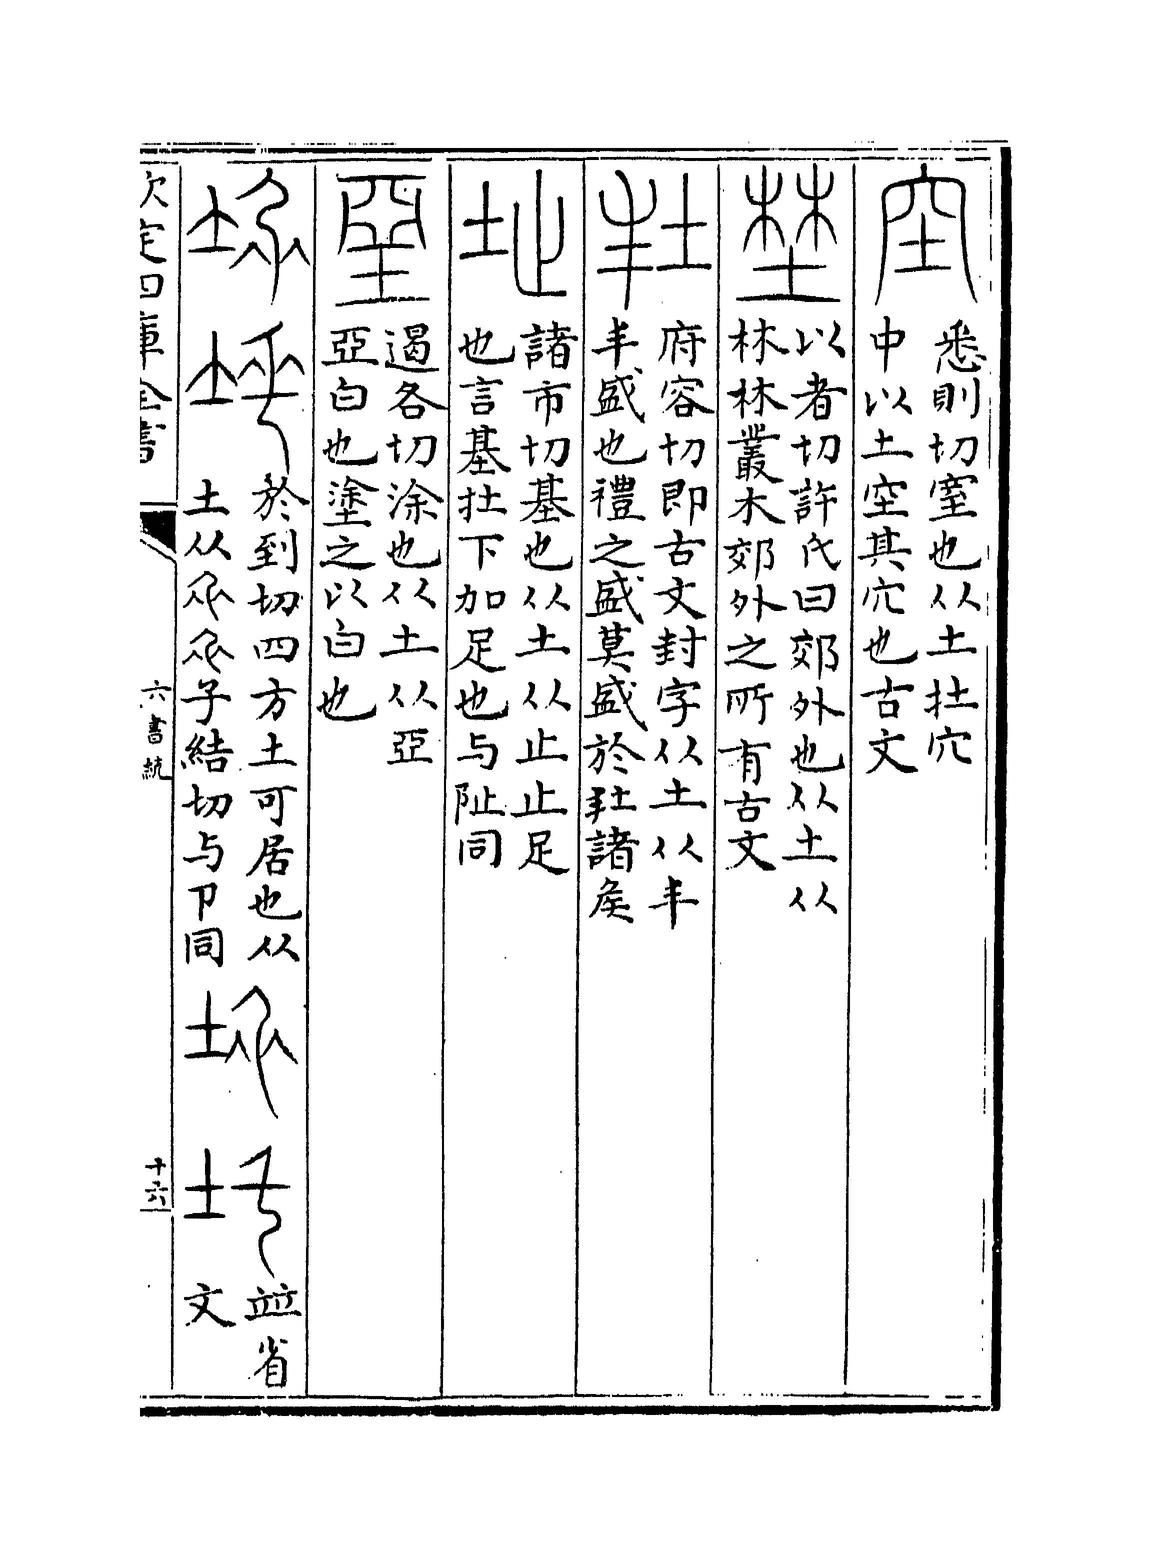 悉則切窒也从土扗穴
中以土空其穴也古文
埜
以者切許氏曰郊外也从土从
林林叢木郊外之所有古文
府容切即古文封字从土从丰
丰盛也禮之盛莫盛於𡉚諸矦
址
諸市切基也从土从止止足
也言基扗下加足也与阯同
堊
遏各切涂也从土从亞
亞白也塗之以白也
於到切四方土可居也从
土从 子結切与卪同
竝省
文
欽定四庫全書
六書統
十六